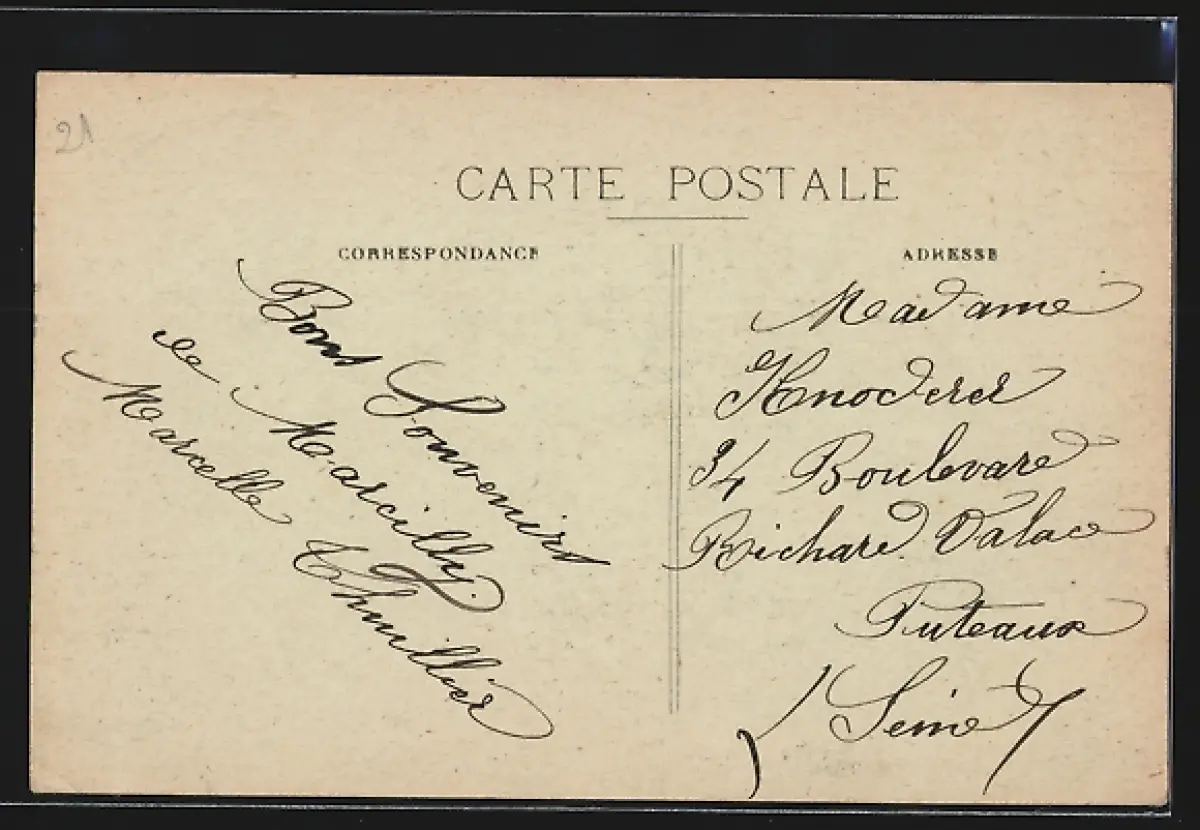 21
CARTE POSTALE
CORRESPONDANCE
ADRESSE
Bons Souvenirs
de Marcilly
Marcelle Thuillier
Madame
Knoderer
34 Boulevard
Richard Valace
Puteaux
(Seine)